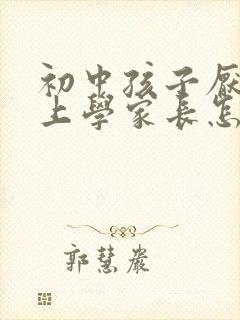 初中孩子厭
上學家長怎
郭慧嚴